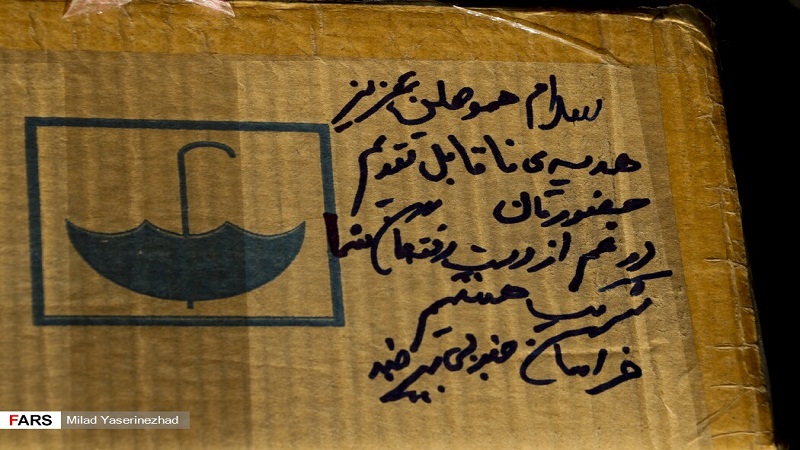 سلام هموطن عزیز
هدیه‌ی ناقابل تقدیم
حضورتان
در غم از دست رفتگان شما
شریک هستیم
خراسان جنوبی بیرجند
FARS Milad Yaserinezhad